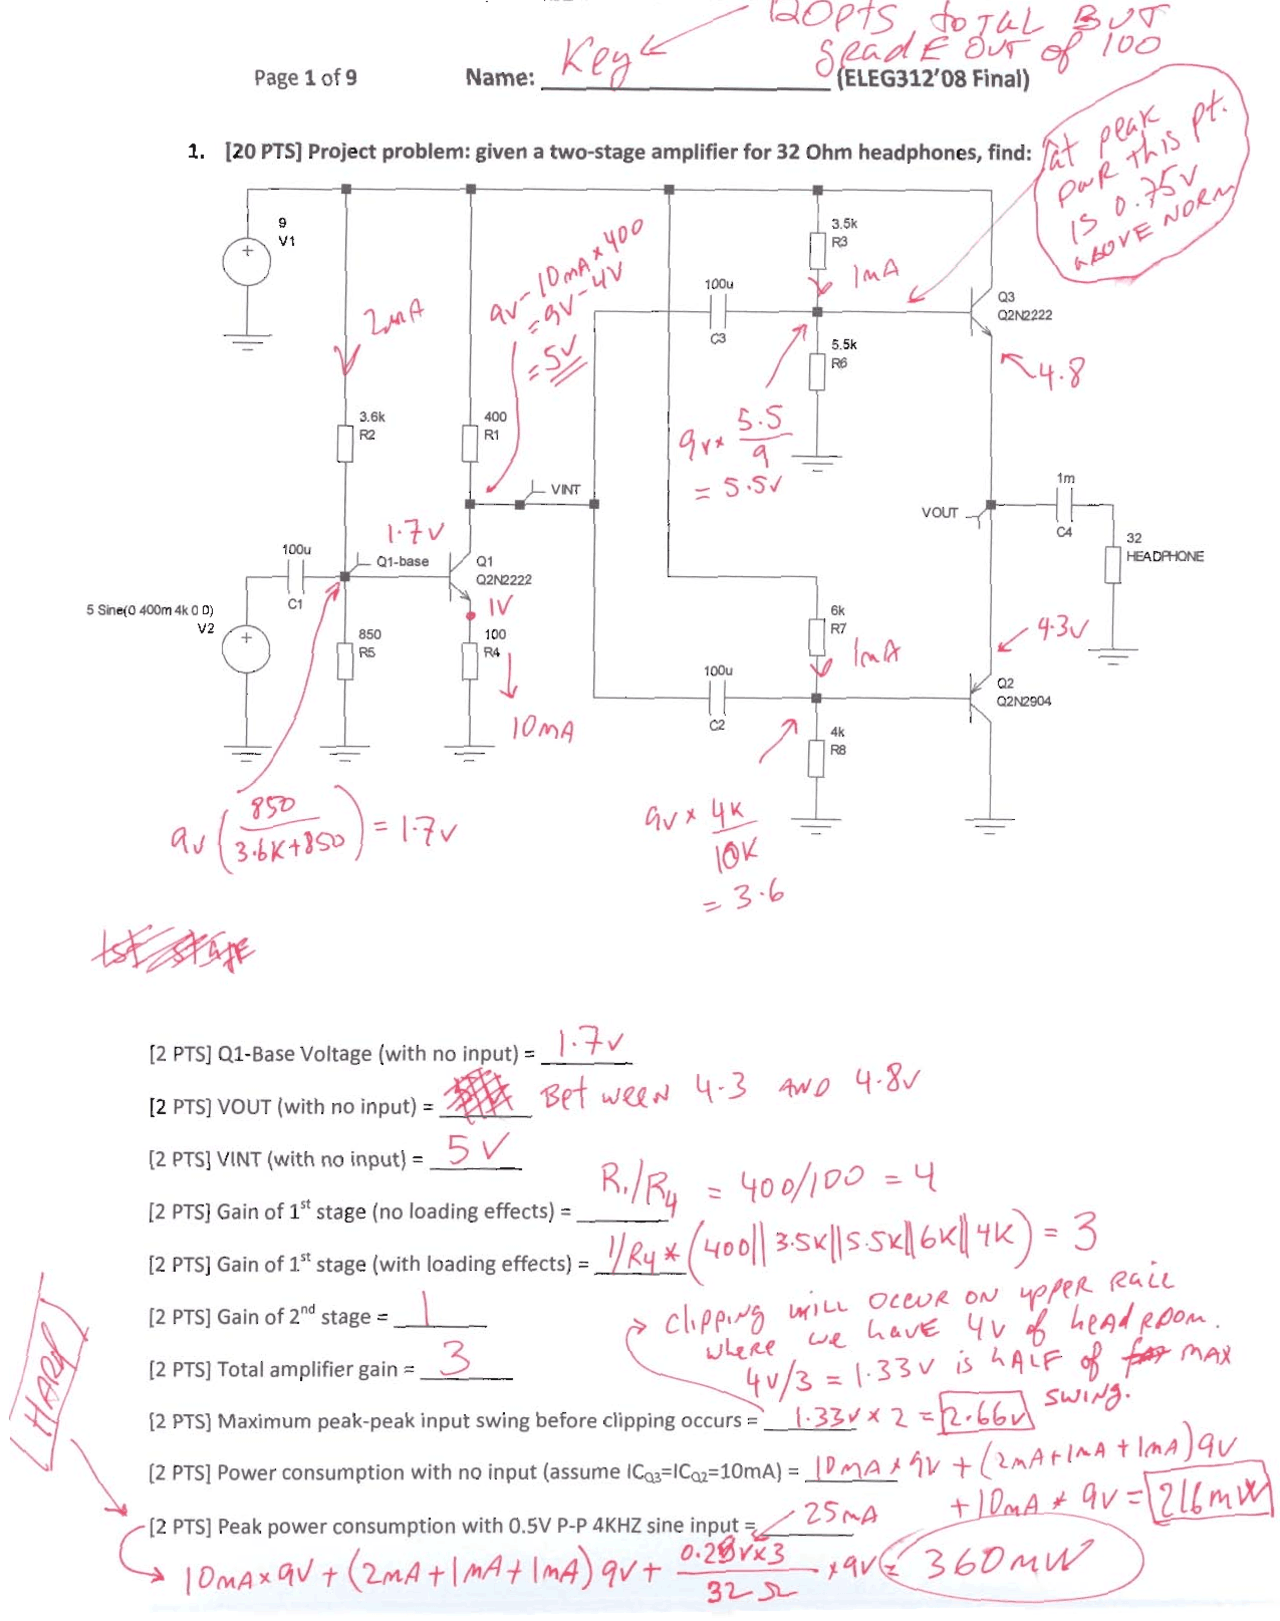 120pts total BUT
Page 1 of 9 Name: Key gradE OUT of 100
(ELEG312'08 Final)
1. [20 PTS] Project problem: given a two-stage amplifier for 32 Ohm headphones, find:
at peak
pwR this pt.
is 0.75v
above NORM
9
V1
2mA
9v-10mA*400
=9v-4V
=5V
3.5k
R3
1mA
100u
C3
Q3
Q2N2222
5.5k
R6
4.8
3.6k
R2
400
R1
9v* 5.5/9
= 5.5v
VINT
1m
C4
VOUT
32
HEADPHONE
1.7v
100u
C1
Q1-base
Q1
Q2N2222
1V
5 Sine(0 400m 4k 0 0)
V2
850
R5
100
R4
10mA
6k
R7
1mA
4.3v
100u
C2
Q2
Q2N2904
4k
R8
9v(850/3.6K+850) = 1.7v
9v * 4K/10K
= 3.6
1st stage
[2 PTS] Q1-Base Voltage (with no input) = 1.7v
[2 PTS] VOUT (with no input) = Between 4.3 AND 4.8v
[2 PTS] VINT (with no input) = 5V
[2 PTS] Gain of 1st stage (no loading effects) = R1/R4 = 400/100 = 4
[2 PTS] Gain of 1st stage (with loading effects) = 1/R4*(400||3.5K||5.5K||6K||4K) = 3
[2 PTS] Gain of 2nd stage = 1
clipping will occur on upper Rail
where we have 4v of headroom.
[2 PTS] Total amplifier gain = 3
4v/3 = 1.33v is hALF of MAX
swing.
[2 PTS] Maximum peak-peak input swing before clipping occurs = 1.33v x 2 = 2.66v
HARD
[2 PTS] Power consumption with no input (assume ICQ3=ICQ2=10mA) = 10mA*9V + (2mA+1mA+1mA)9v
+10mA * 9v = 216mW
[2 PTS] Peak power consumption with 0.5V P-P 4KHZ sine input = 25mA
10mA x 9V + (2mA+1mA+1mA) 9v + 0.25v x 3/32Ω * 9v = 360mW